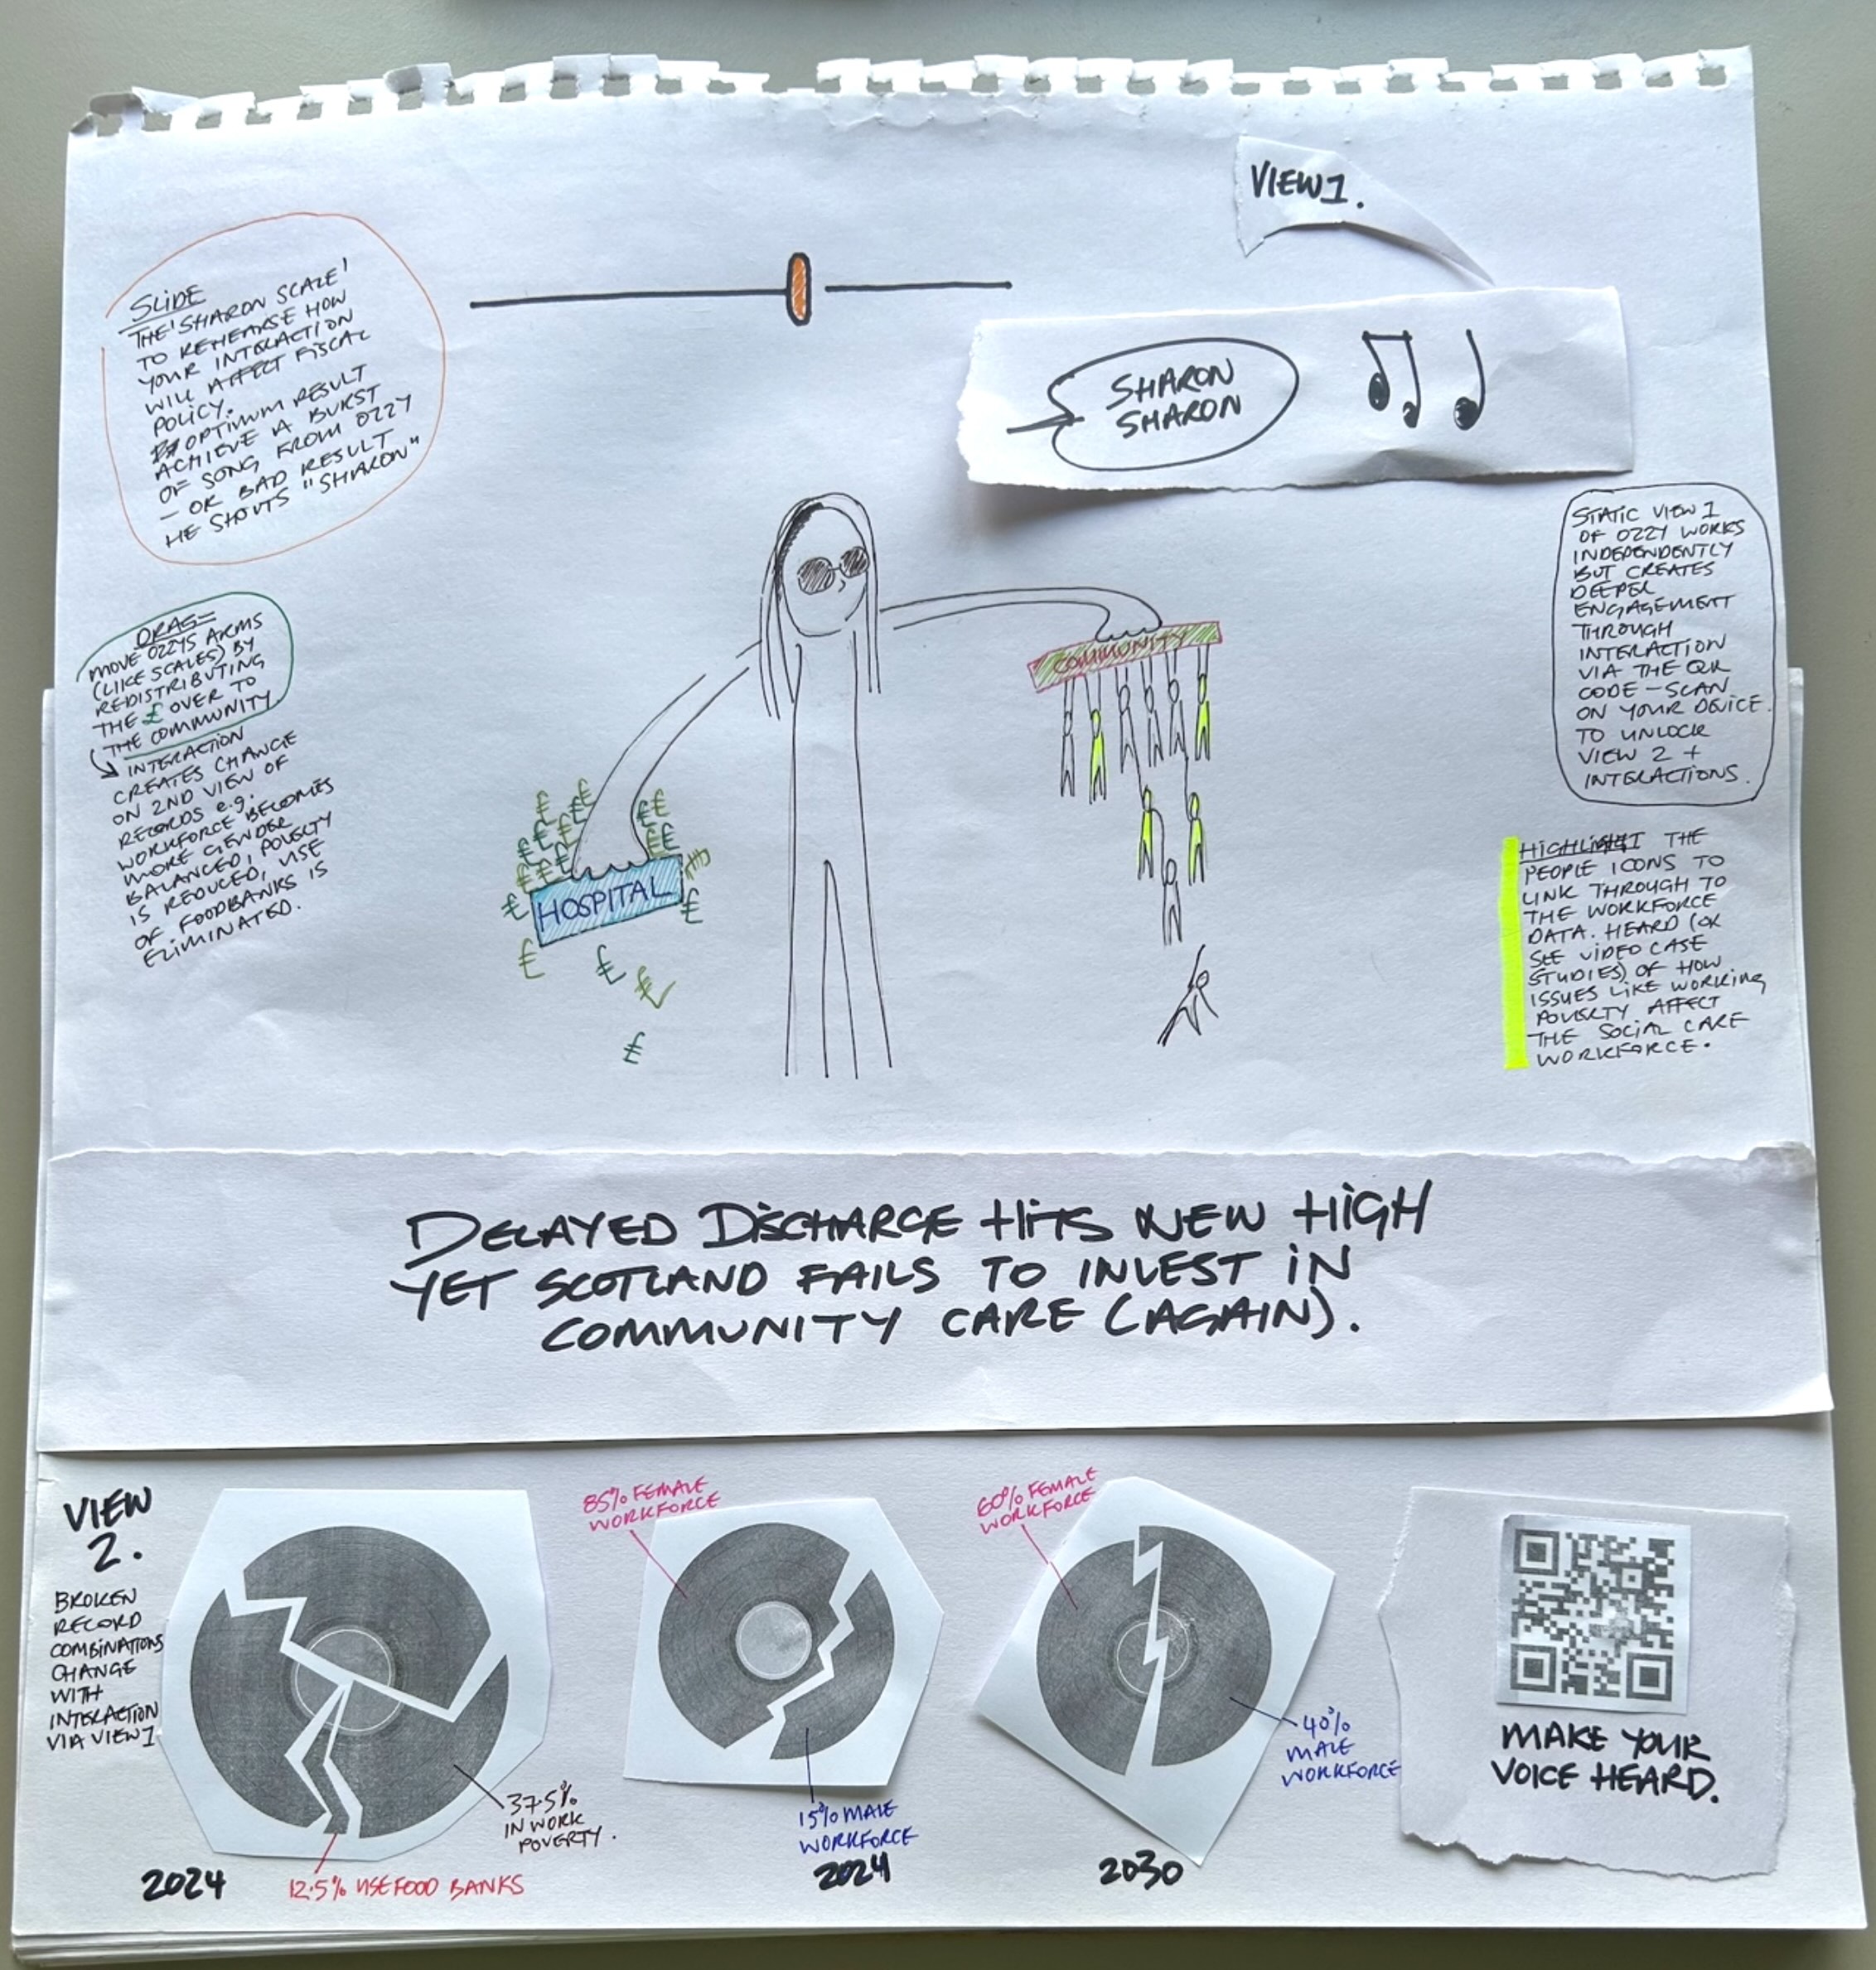 VIEW 1.
SLIDE
THE 'SHARON SCALE'
TO REHEARSE HOW
YOUR INTERACTION
WILL AFFECT FISCAL
POLICY.
OPTIMUM RESULT
ACHIEVE A BURST
OF SONG FROM OZZY
– OR BAD RESULT
HE SHOUTS "SHARON"
SHARON
SHARON
DRAG=
MOVE OZZYS ARMS
(LIKE SCALES) BY
REDISTRIBUTING
THE £ OVER TO
THE COMMUNITY
INTERACTION
CREATES CHANGE
ON 2ND VIEW OF
RECORDS e.g.
WORKFORCE BECOMES
MORE GENDER
BALANCED, POVERTY
IS REDUCED, USE
OF FOODBANKS IS
ELIMINATED.
£ £ £ £
£ £ £ £
£ £ £
£ £
HOSPITAL
£ £
£ £ £
£
COMMUNITY
STATIC VIEW 1
OF OZZY WORKS
INDEPENDENTLY
BUT CREATES
DEEPER
ENGAGEMENT
THROUGH
INTERACTION
VIA THE QR
CODE – SCAN
ON YOUR DEVICE.
TO UNLOCK
VIEW 2 +
INTERACTIONS.
HIGHLIGHT THE
PEOPLE ICONS TO
LINK THROUGH TO
THE WORKFORCE
DATA. HEARD (OR
SEE VIDEO CASE
STUDIES) OF HOW
ISSUES LIKE WORKING
POVERTY AFFECT
THE SOCIAL CARE
WORKFORCE.
DELAYED DISCHARGE HITS NEW HIGH
YET SCOTLAND FAILS TO INVEST IN
COMMUNITY CARE (AGAIN).
VIEW
2.
BROKEN
RECORD
COMBINATIONS
CHANGE
WITH
INTERACTION
VIA VIEW 1
37.5%
IN WORK
POVERTY.
12.5% USE FOOD BANKS
2024
85% FEMALE
WORKFORCE
15% MALE
WORKFORCE
2024
60% FEMALE
WORKFORCE
40%
MALE
WORKFORCE
2030
MAKE YOUR
VOICE HEARD.